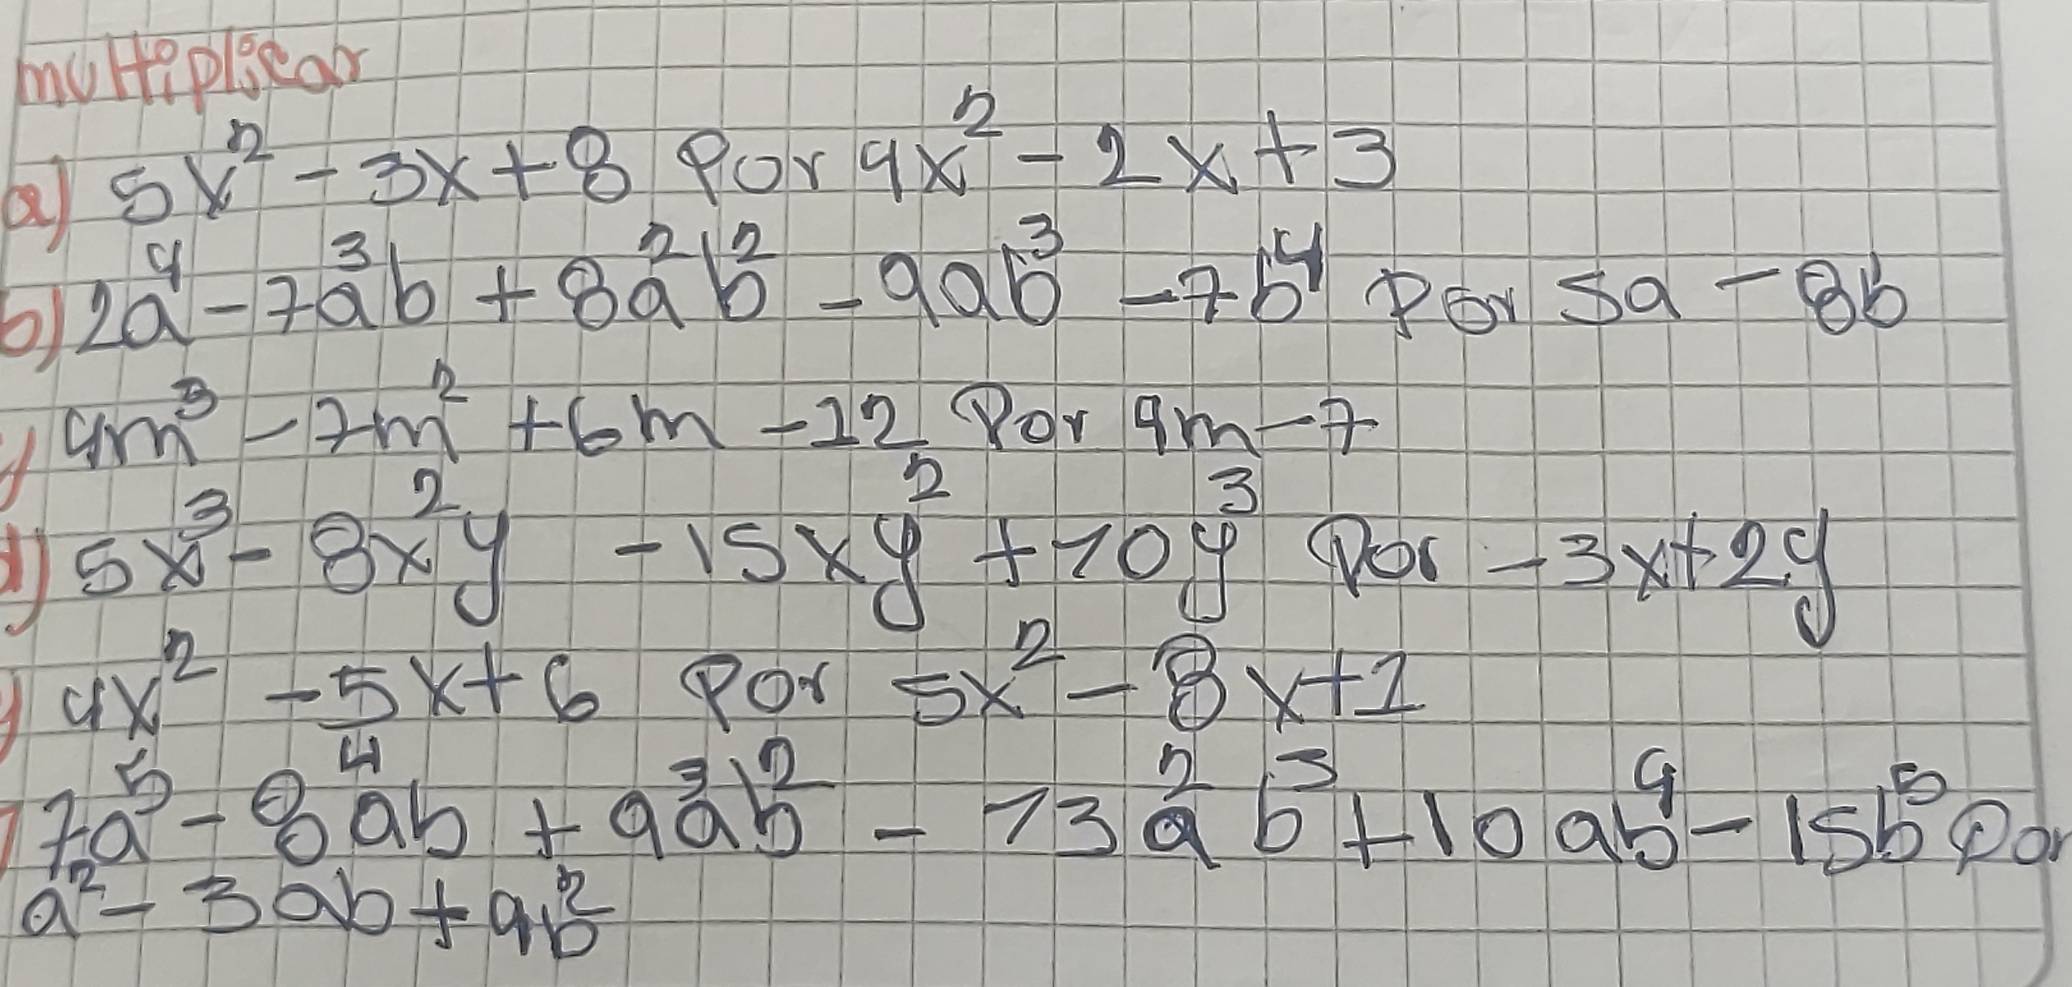 multiplicar
a) 5x² - 3x + 8 Por 4x² - 2x + 3
b) 2a⁴ - 7a³b + 8a²b² - 9ab³ - 7b⁴ Por 5a - 8b
4m³ - 7m² + 6m - 12 Por 9m - 7
d) 5x³ - 8x²y - 15xy² + 10y³ Por - 3x + 2y
4x² - 5x + 6 Por 5x² - 8x + 1
7a⁵ - 8a⁴b + 9a³b² - 13a²b³ + 10ab⁴ - 15b⁵ Por
a² - 3ab + 9b²